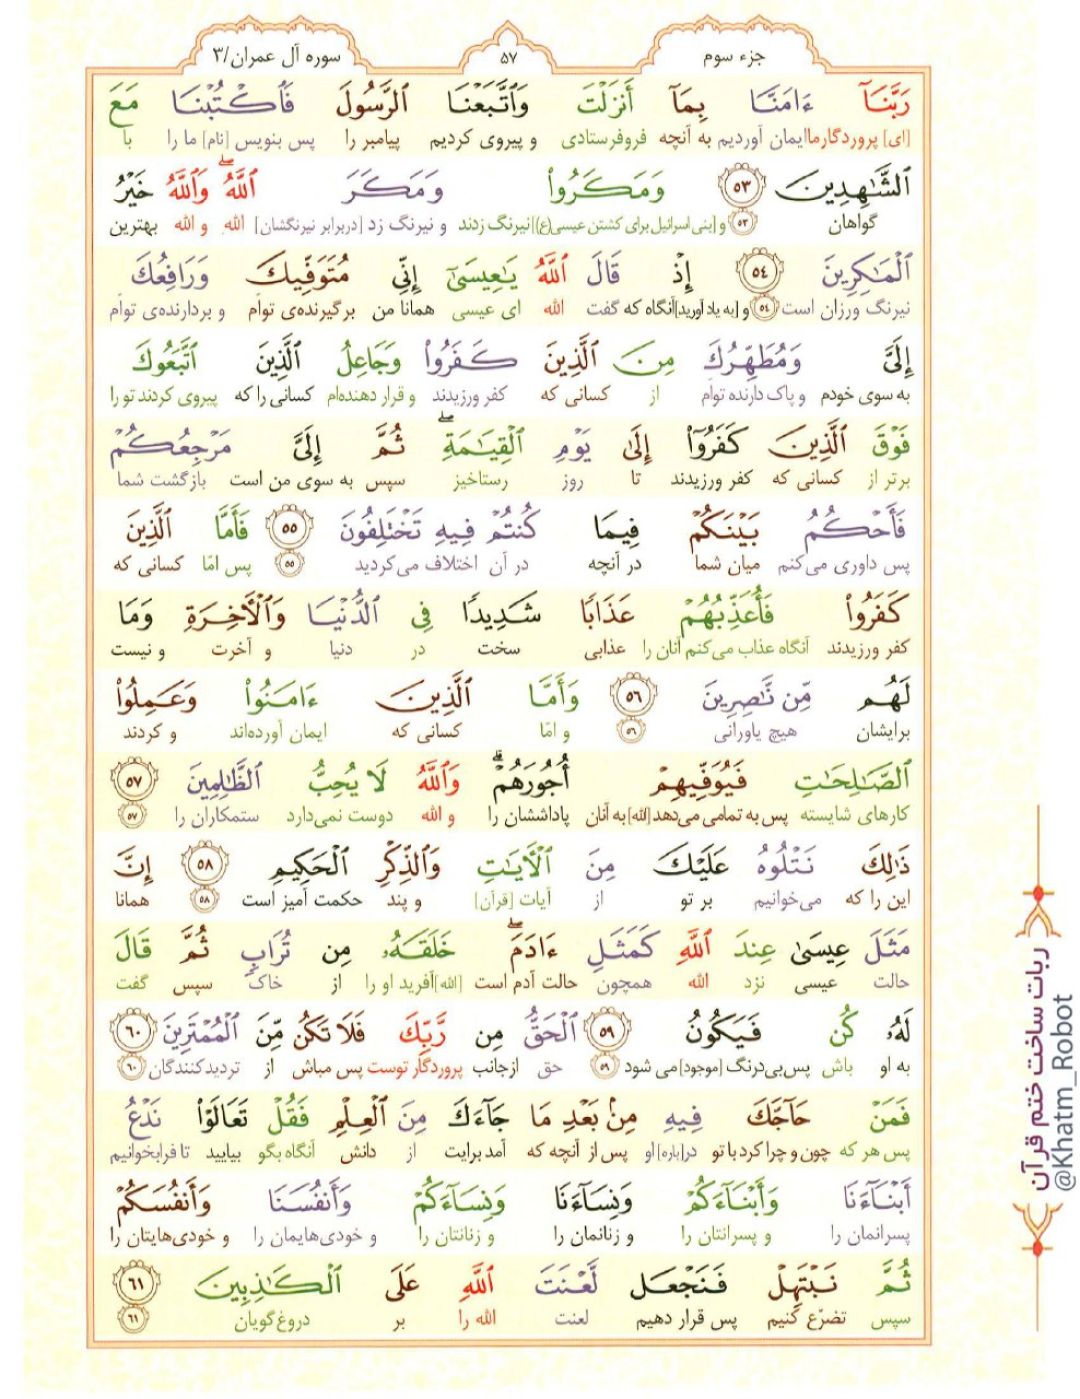 جزء سوم
۵۷
سوره آل عمران/۳
رَبَّنَآ ءَامَنَّا بِمَآ أَنزَلْتَ وَٱتَّبَعْنَا ٱلرَّسُولَ فَٱكْتُبْنَا مَعَ
[ای] پروردگارما ایمان آوردیم به آنچه فروفرستادی و پیروی کردیم پیامبر را پس بنویس [نام] ما را با
ٱلشَّٰهِدِينَ ٥٣ وَمَكَرُوا۟ وَمَكَرَ ٱللَّهُ ۖ وَٱللَّهُ خَيْرُ
گواهان ٥٣ و [بنی اسرائیل برای کشتن عیسی(ع)] نیرنگ زدند و نیرنگ زد [دربرابر نیرنگشان] الله و الله بهترین
ٱلْمَٰكِرِينَ ٥٤ إِذْ قَالَ ٱللَّهُ يَٰعِيسَىٰٓ إِنِّى مُتَوَفِّيكَ وَرَافِعُكَ
نیرنگ ورزان است ٥٤ و [به یاد آورید] آنگاه که گفت الله ای عیسی همانا من برگیرنده‌ی توأم و بردارنده‌ی توأم
إِلَىَّ وَمُطَهِّرُكَ مِنَ ٱلَّذِينَ كَفَرُوا۟ وَجَاعِلُ ٱلَّذِينَ ٱتَّبَعُوكَ
به سوی خودم و پاک دارنده توأم از کسانی که کفر ورزیدند و قرار دهنده‌ام کسانی را که پیروی کردند تو را
فَوْقَ ٱلَّذِينَ كَفَرُوٓا۟ إِلَىٰ يَوْمِ ٱلْقِيَٰمَةِ ۖ ثُمَّ إِلَىَّ مَرْجِعُكُمْ
برتر از کسانی که کفر ورزیدند تا روز رستاخیز سپس به سوی من است بازگشت شما
فَأَحْكُمُ بَيْنَكُمْ فِيمَا كُنتُمْ فِيهِ تَخْتَلِفُونَ ٥٥ فَأَمَّا ٱلَّذِينَ
پس داوری می‌کنم میان شما در آنچه در آن اختلاف می‌کردید ٥٥ پس امّا کسانی که
كَفَرُوا۟ فَأُعَذِّبُهُمْ عَذَابًا شَدِيدًا فِى ٱلدُّنْيَا وَٱلْأَخِرَةِ وَمَا
کفر ورزیدند آنگاه عذاب می‌کنم آنان را عذابی سخت در دنیا و آخرت و نیست
لَهُم مِّن نَّٰصِرِينَ ٥٦ وَأَمَّا ٱلَّذِينَ ءَامَنُوا۟ وَعَمِلُوا۟
برایشان هیچ یاورانی ٥٦ و امّا کسانی که ایمان آورده‌اند و کردند
ٱلصَّٰلِحَٰتِ فَيُوَفِّيهِمْ أُجُورَهُمْ ۗ وَٱللَّهُ لَا يُحِبُّ ٱلظَّٰلِمِينَ ٥٧
کارهای شایسته پس به تمامی می‌دهد [الله] به آنان پاداششان را و الله دوست نمی‌دارد ستمکاران را ٥٧
ذَٰلِكَ نَتْلُوهُ عَلَيْكَ مِنَ ٱلْأَيَٰتِ وَٱلذِّكْرِ ٱلْحَكِيمِ ٥٨ إِنَّ
این را که می‌خوانیم بر تو از آیات [قرآن] و پند حکمت آمیز است ٥٨ همانا
مَثَلَ عِيسَىٰ عِندَ ٱللَّهِ كَمَثَلِ ءَادَمَ ۖ خَلَقَهُۥ مِن تُرَابٍ ثُمَّ قَالَ
حالت عیسی نزد الله همچون حالت آدم است [الله] آفرید او را از خاک سپس گفت
لَهُۥ كُن فَيَكُونُ ٥٩ ٱلْحَقُّ مِن رَّبِّكَ فَلَا تَكُن مِّنَ ٱلْمُمْتَرِينَ ٦٠
به او باش پس بی‌درنگ [موجود] می شود ٥٩ حق ازجانب پروردگار توست پس مباش از تردیدکنندگان ٦٠
فَمَنْ حَآجَّكَ فِيهِ مِنۢ بَعْدِ مَا جَآءَكَ مِنَ ٱلْعِلْمِ فَقُلْ تَعَالَوْا۟ نَدْعُ
پس هر که چون و چرا کرد با تو در [باره] او پس از آنچه که آمد برایت از دانش آنگاه بگو بیایید تا فرابخوانیم
أَبْنَآءَنَا وَأَبْنَآءَكُمْ وَنِسَآءَنَا وَنِسَآءَكُمْ وَأَنفُسَنَا وَأَنفُسَكُمْ
پسرانمان را و پسرانتان را و زنانمان را و زنانتان را و خودی‌هایمان را و خودی‌هایتان را
ثُمَّ نَبْتَهِلْ فَنَجْعَل لَّعْنَتَ ٱللَّهِ عَلَى ٱلْكَٰذِبِينَ ٦١
سپس تضرّع کنیم پس قرار دهیم لعنت الله را بر دروغ‌گویان ٦١
ربات ساخت ختم قرآن
@Khatm_Robot